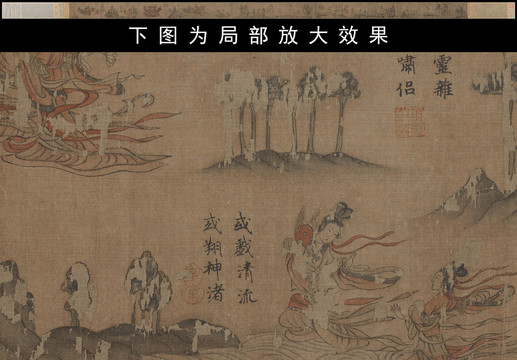 下图为局部放大效果
靈雜
嘯侣
或戲清流
或翔神渚